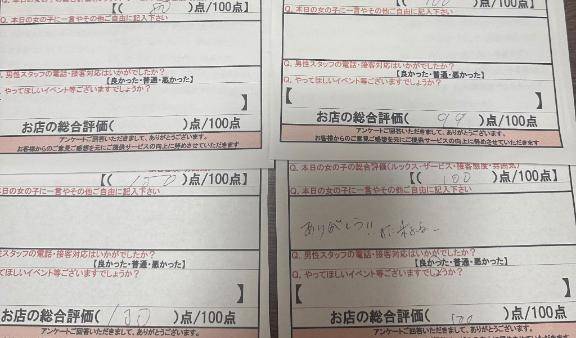 【( 80 )点/100点】
Q. 本日の女の子に一言やその他ご自由に記入下さい
Q. 男性スタッフの電話・接客対応はいかがでしたか?
【良かった・普通・悪かった】
Q. やってほしいイベント等ございますでしょうか?
】
お店の総合評価( )点/100点
アンケートご回答いただきまして、ありがとうございます。
お客様からのご意見ご感想を元にご提供サービスの向上に努めさせていただきます
【( 100 )点/100点】
Q. 本日の女の子に一言やその他ご自由に記入下さい
Q. 男性スタッフの電話・接客対応はいかがでしたか?
【良かった・普通・悪かった】
Q. やってほしいイベント等ございますでしょうか?
【 】
お店の総合評価( 99 )点/100点
アンケートご回答いただきまして、ありがとうございます。
お客様からのご意見ご感想を元にご提供サービスの向上に努めさせていただきます
【( )点/100点】
本日の女の子に一言やその他ご自由に記入下さい
性スタッフの電話・接客対応はいかがでしたか?
【良かった・普通・悪かった】
てほしいイベント等ございますでしょうか?
】
お店の総合評価( 100 )点/100点
アンケートご回答いただきまして、ありがとうございます。
Q. 本日の女の子の総合評価(ルックス・サービス・接客態度・雰囲気)
【( 100 )点/100点】
Q. 本日の女の子に一言やその他ご自由に記入下さい
ありがとう!!
Q. 男性スタッフの電話・接客対応はいかがでしたか?
【良かった・普通・悪かった】
Q. やってほしいイベント等ございますでしょうか?
【 】
お店の総合評価( )点/100点
アンケートご回答いただきまして、ありがとうございます。